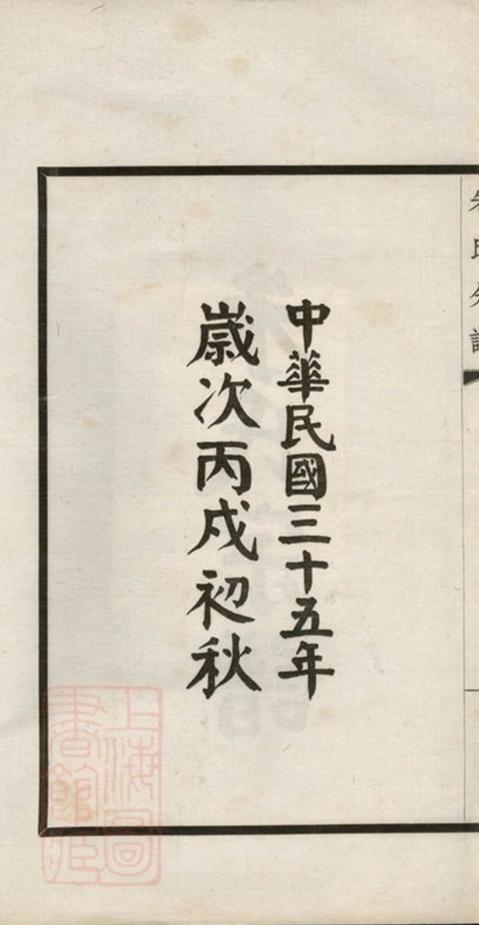 朱氏分譜
中華民國三十五年
歲次丙戌初秋
上海圖
書館藏